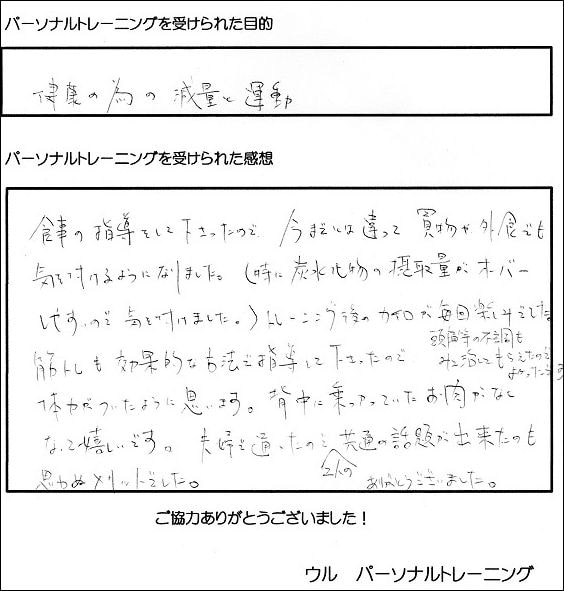 パーソナルトレーニングを受けられた目的
健康の為の減量と運動
パーソナルトレーニングを受けられた感想
食事の指導をして下さったので、今までとは違って買物や外食でも
気を付けるようになりました。(特に炭水化物の摂取量がオーバー
しやすいので気を付けました。)トレーニング後のカイロが毎回楽しみでした。
頭痛等の不調も
みて治してもらえたので
よかったです
筋トレも効果的な方法で指導して下さったので
体力がついたように思います。背中に乗っかっていたお肉がなく
なって嬉しいです。夫婦で通ったので共通の話題が出来たのも
2人の
思わぬメリットでした。ありがとうございました。
ご協力ありがとうございました!
ウル パーソナルトレーニング